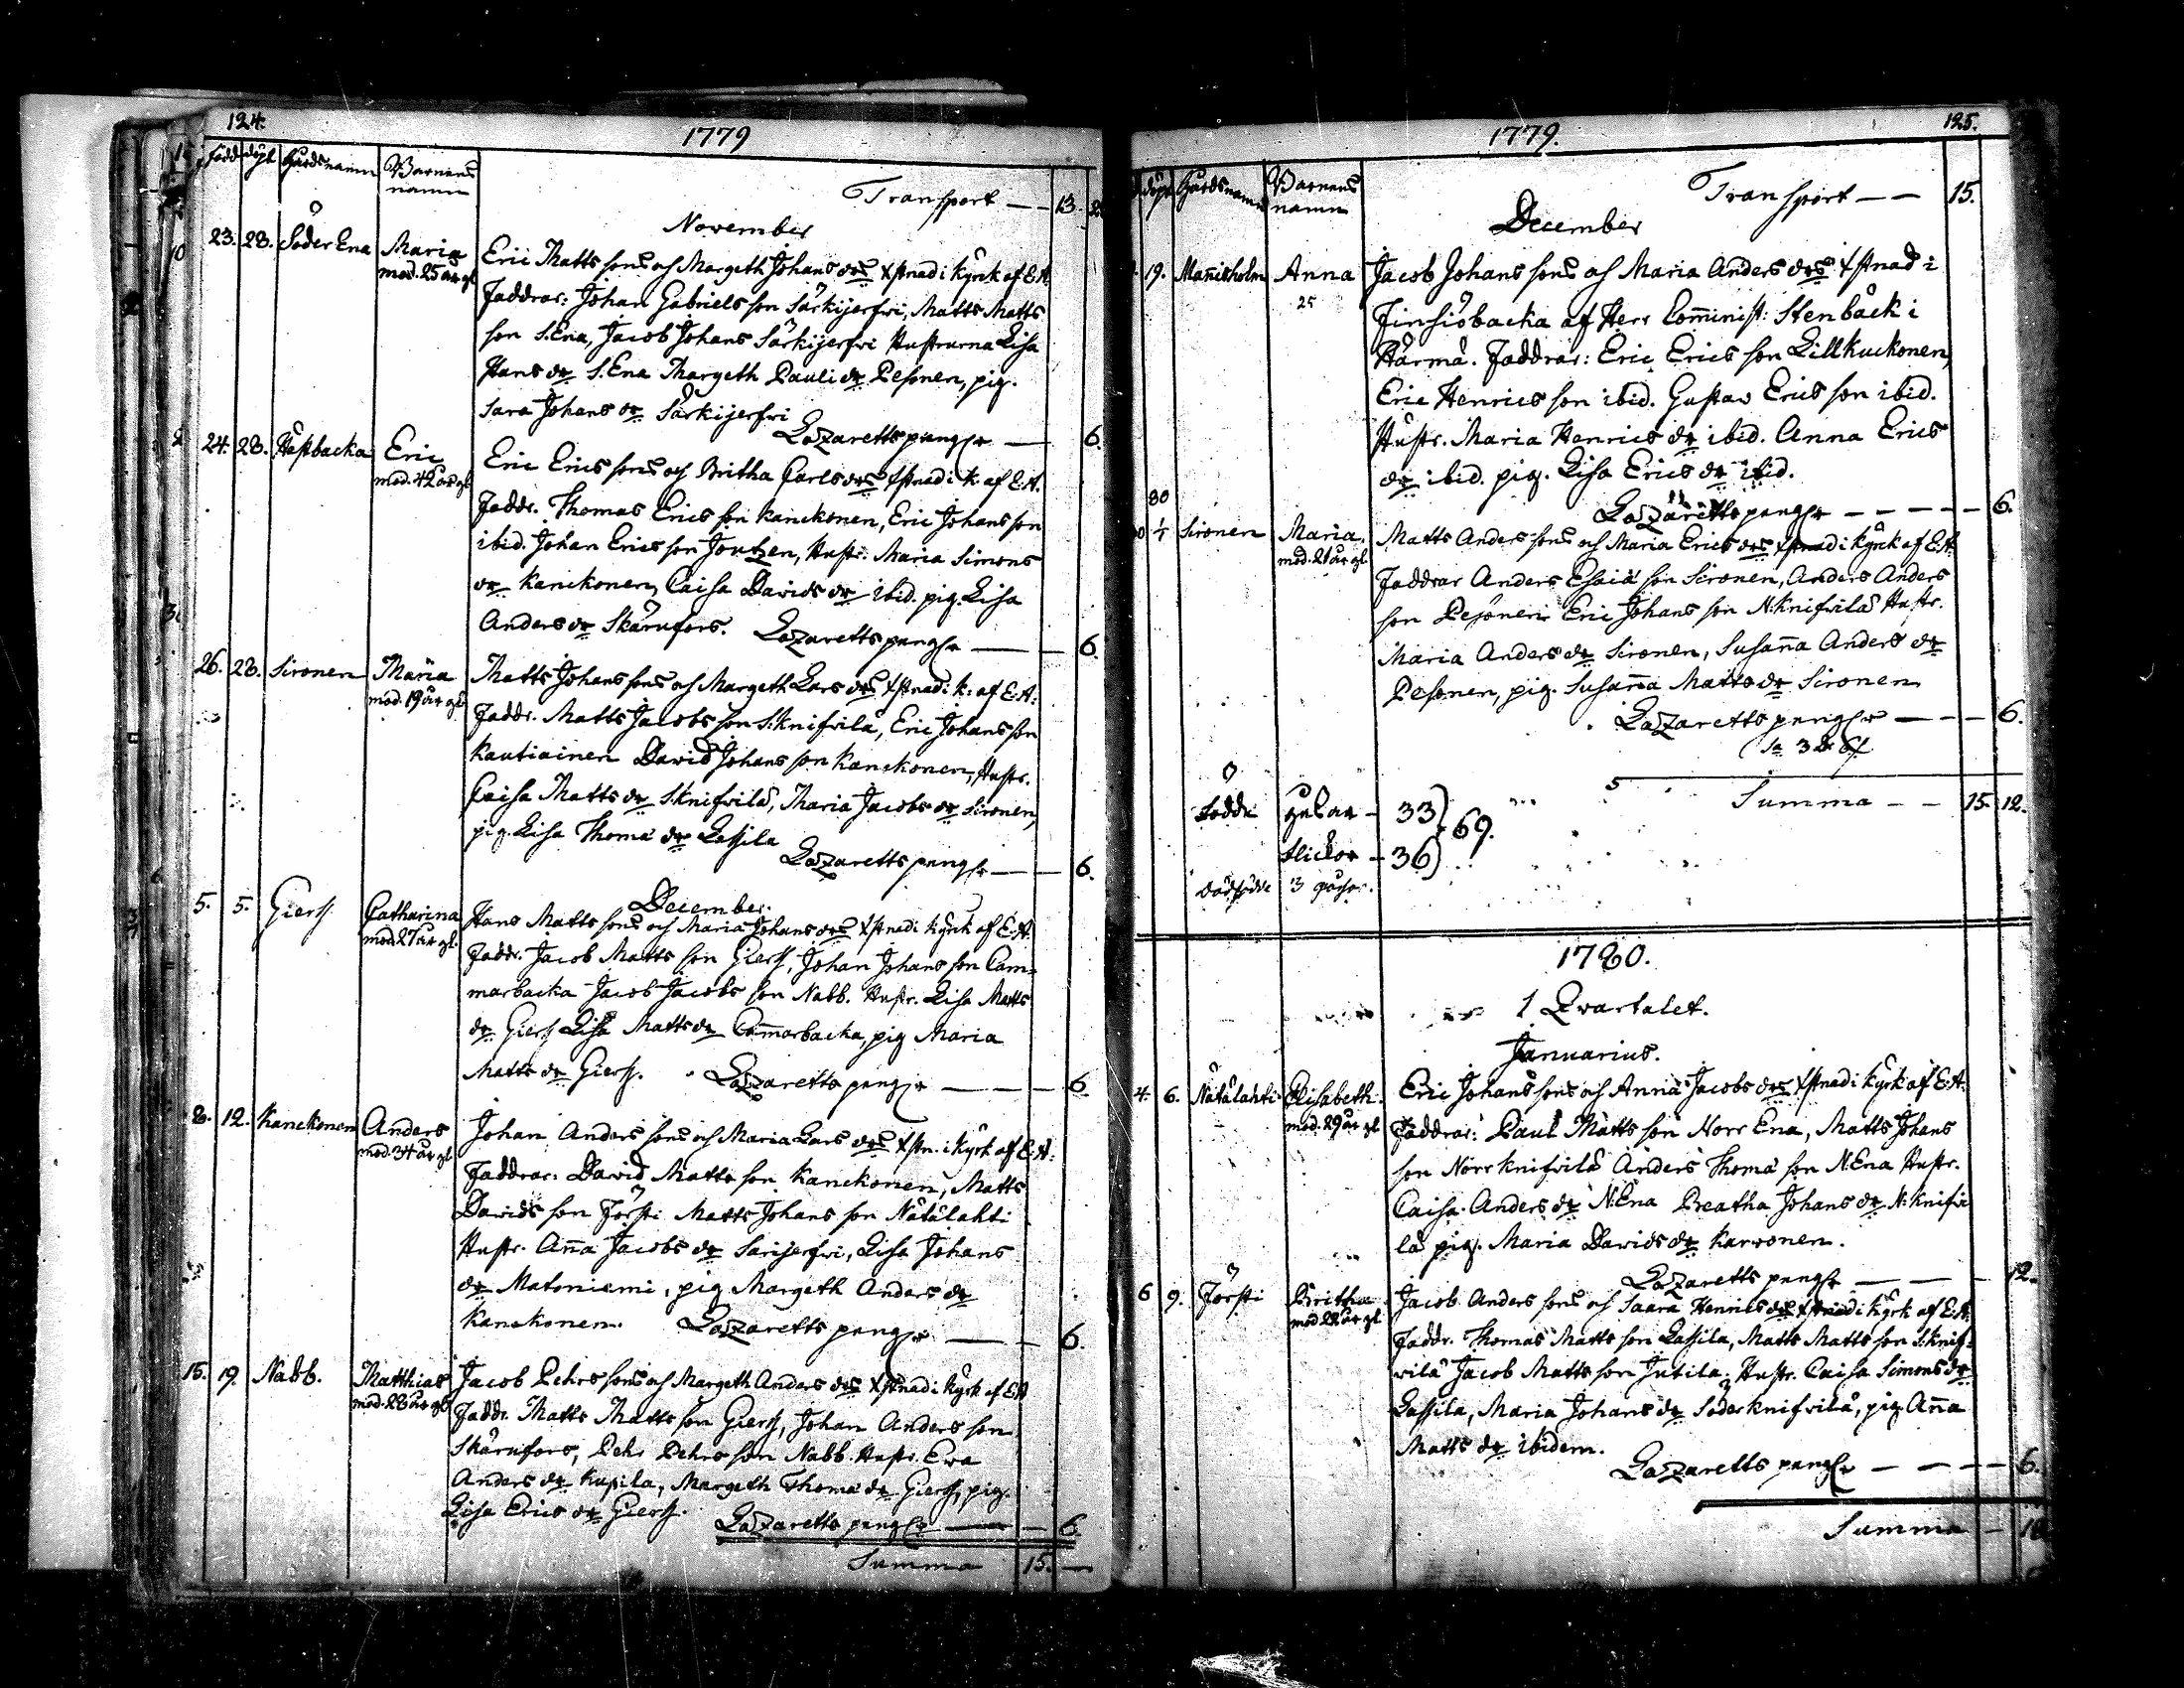 124.
1779
född döpt Gårdsnamn Barnens namn
Transport — 13.
November
23. 28. Söder Ena Maria mod. 25 år gl. Eric Matts sons och Margeth Johans drs Xstnad i Kyrk af E:A.
Faddrar: Johan Gabriels son Särkijerfvi, Matts Matts
son S.Ena, Jacob Johans Särkijerfvi Hustrurna Lisa
Hans dr S.Ena Margeth Pauli dr Pesonen, pig.
Sara Johans dr Särkijerfvi
Lazaretts pengar — 6.
24. 28. Hästbacka Eric mod. 42 år gl Eric Erics sons och Britha Carls drs Xstnad i K. af E:A.
Faddr. Thomas Erics son Kanckonen, Eric Johans son
ibid. Johan Erics son Joutzen, Hustr. Maria Simons
dr Kanckonen, Caisa Davids dr ibid. pig. Lisa
Anders dr Skärufors. Lazaretts pengar — 6.
26. 28. Sironen Maria mod. 19 år gl Matts Johans sons och Margeth Lars drs Xstnad i K: af E:A:
Faddr. Matts Jacobs son S:Knifvilä, Eric Johans son
Kautiainen David Johans son Kanckonen, Hustr.
Caisa Matts dr S.Knifvilä, Maria Jacobs dr Sironen,
pig. Lisa Thomæ dr Lassila
Lazaretts pengar — 6.
December.
5. 5. Giers Catharina mod 27 år gl. Hans Matts sons och Maria Johans drs Xstnad i Kyrk af E:A.
Faddr. Jacob Matts son Giers, Johan Johans son Cam=
marbacka Jacob Jacobs son Nabb. Hustr. Lisa Matts
dr Giers Lisa Matts dr Cam̄arbacka, pig Maria
Matts dr Giers. Lazaretts pengar — 6
8. 12. Kanckonen Anders mod. 34 år gl Johan Anders sons och Maria Lars drs Xstn. i Kyrk af E:A:
Faddrar: David Matts son Kanckonen, Matts
Davids son Försti Matts Johans son Nätälahti
Hustr. An̄a Jacobs dr Sarijerfvi, Lisa Johans
dr Matoniemi, pig Margeth Anders dr
Kanckonen. Lazaretts pengar — 6.
15. 19. Nabb. Matthias mod. 28 år gl Jacob Pehrs sons och Margeth Anders drs Xstnad i Kyrk af E:A
Faddr. Matts Matts son Giers, Johan Anders son
Skärufors, Pehr Pehrs son Nabb. Hustr. Eva
Anders dr Kupila, Margeth Thomæ dr Giers, pig.
Lisa Erics dr Giers.
Lazaretts pengar — 6.
Summa 15. —
125.
1779.
döpt Gårdsnamn Barnens namn
Transport — 15.
December
19. Man̄ickholm Anna 25 Jacob Johans sons och Maria Anders drs Xstnad i
Finsiöbacka af Herr Com̄inist: Stenbäck i
Härmä. Faddrar: Eric Erics son Lillkuckonen,
Eric Henrics son ibid. Gustav Erics son ibid.
Hustr. Maria Henrics dr ibid. Anna Erics
dr ibid. pig. Lisa Erics dr ibid.
Lazaretts pengar — 6.
80
1/1 Sironen Maria. mod. 21 år gl Matts Anders sons och Maria Erics drs Xstnad i Kyrk af E:A:
Faddrar Anders Esaiæ son Sironen, Anders Anders
son Pesonen Eric Johans son N:Knifvilä Hustr.
Maria Anders dr Sironen, Susan̄a Anders dr
Pesonen, pig. Susan̄a Matts dr Sironen
Lazaretts pengar — 6.
Summa — 15. 12.
födde gossar - 33
flickor - 36
69.
dödfödde 3
1780.
1 Qvartalet.
Januarius.
4. 6. Nätälahti Elisabeth. mod. 29 år gl Eric Johans sons och Anna Jacobs drs Xstnad i Kyrk af E:A:
Faddrar: Paul Matts son Norr Ena, Matts Johans
son Norrknifvilä Anders Thomæ son N:Ena Hustr.
Caisa Anders dr N:Ena Breatha Johans dr N:Knifvi
lä pig. Maria Davids dr Karvonen.
Lazaretts pengar — 12.
6 9. Försti Britha mod. 22 år gl Jacob Anders sons och Saara Henrics drs Xstnad i Kyrk af E:A.
Faddr. Thomas Matts son Lassila, Matts Matts son S:Knif-
vilä Jacob Matts son Jutila; Hustr. Caisa Simons dr
Lassila, Maria Johans dr Söderknifvilä, pig An̄a
Matts dr ibidem.
Lazaretts pengar — 6.
Summa — 18